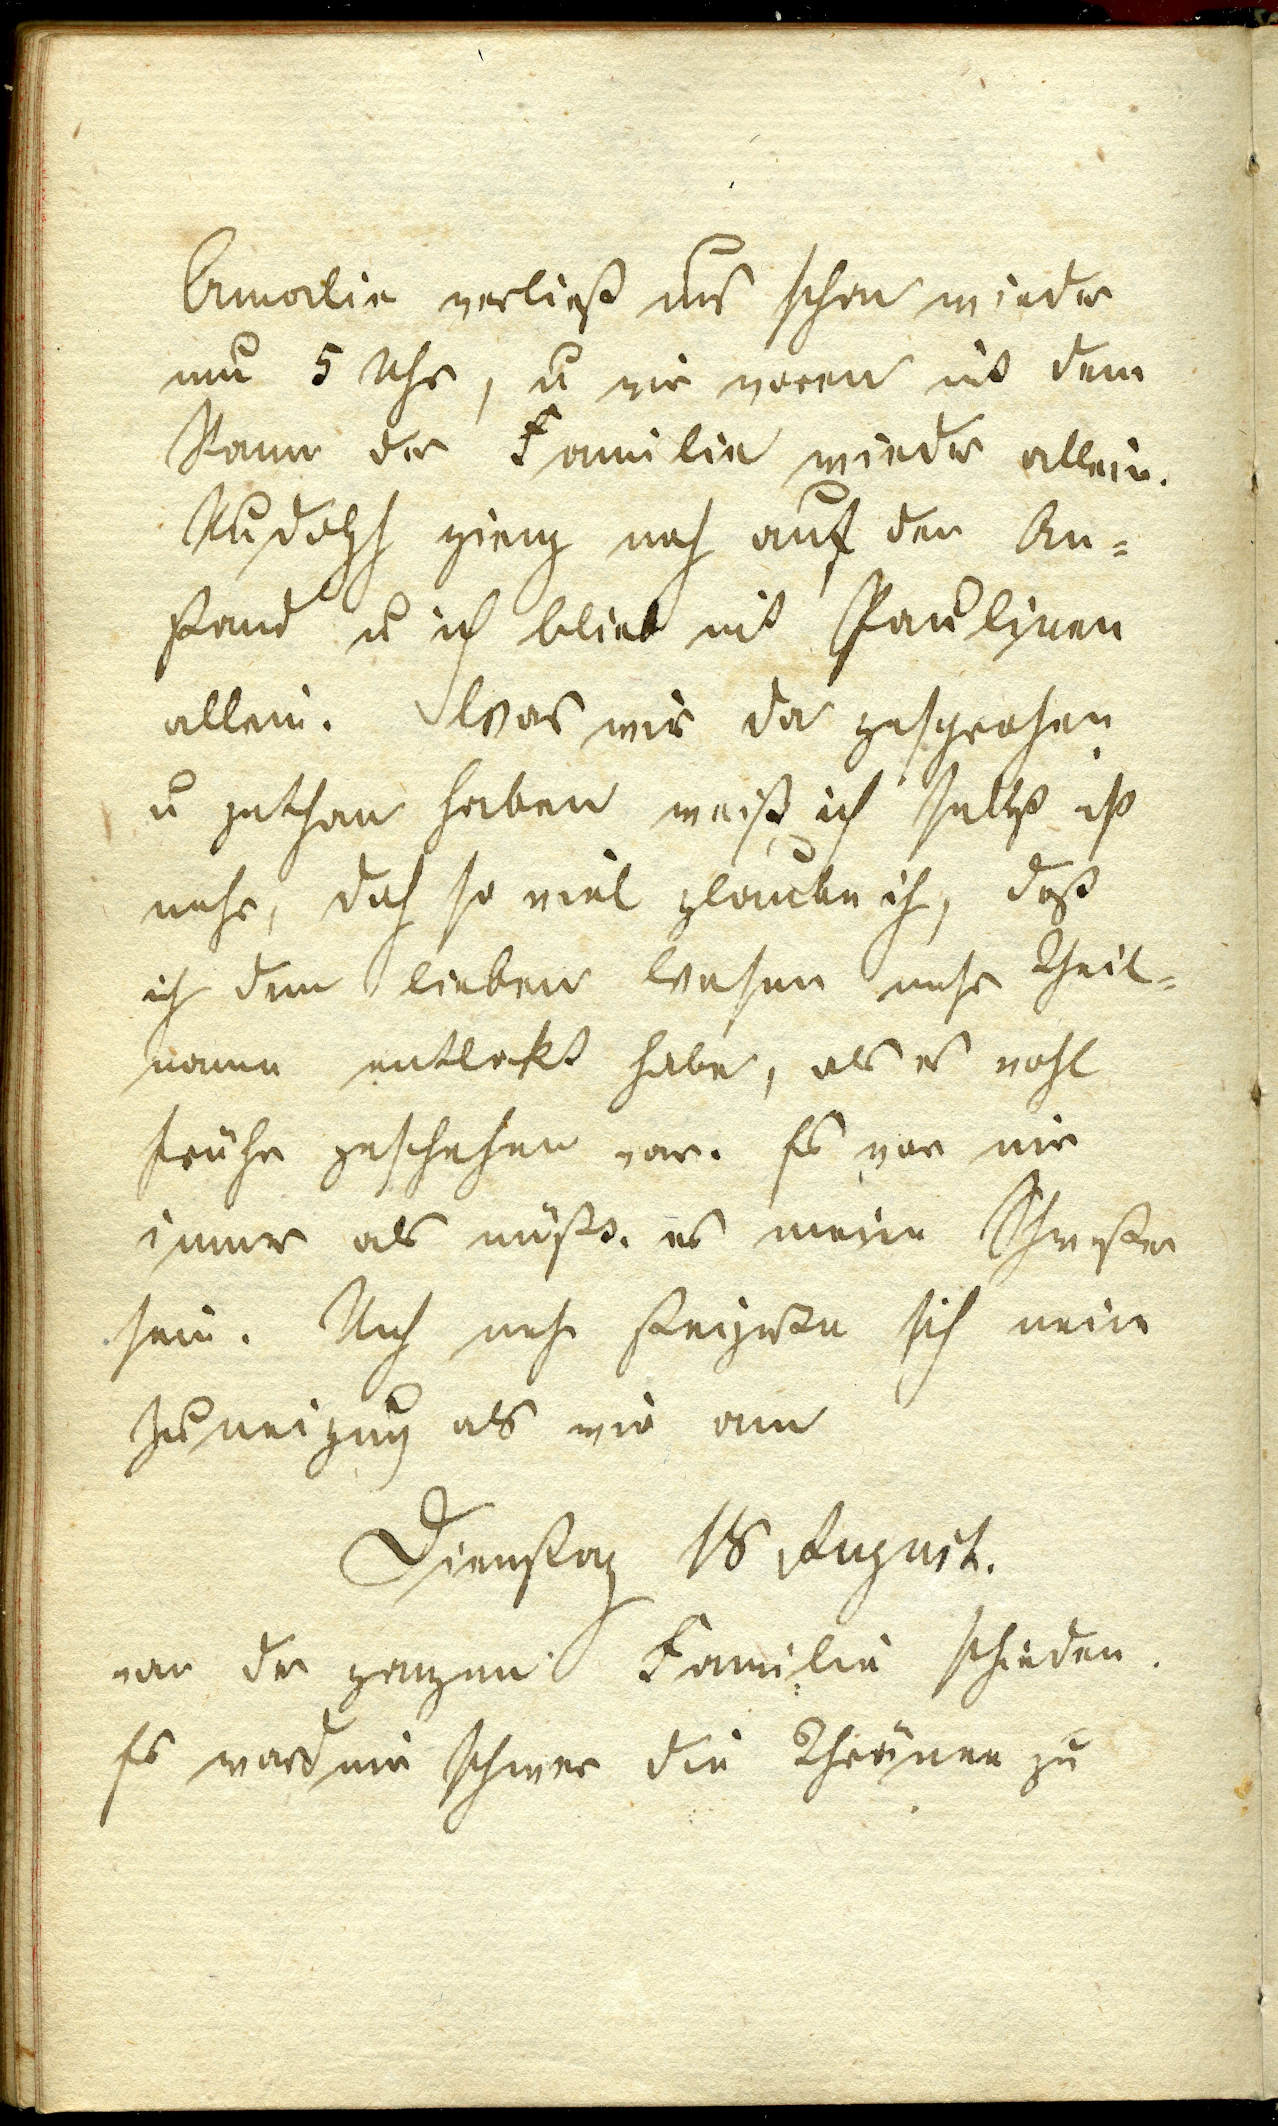 Amalie verließ uns schon wieder
um 5 Uhr, u wir waren mit dem
Stamm der Familie wieder allein.
Rudolph gieng noch auf den An=
stand u ich blieb mit Paulinen
allein. Was wir da gesprochen
u gethan haben weiß ich selbst nicht
mehr, doch so viel glaube ich, daß
ich dem lieben Wesen mehr Theil=
name entlokt habe, als es wohl
frühe geschehen war. Es war mir
immer als müßte es meine Schwester
sein. Noch mehr steigerte sich meine
Zuneigung als wir am
Dienstag 18 August.
von der ganzen Familie schieden.
Es ward mir schwer die Thränen zu